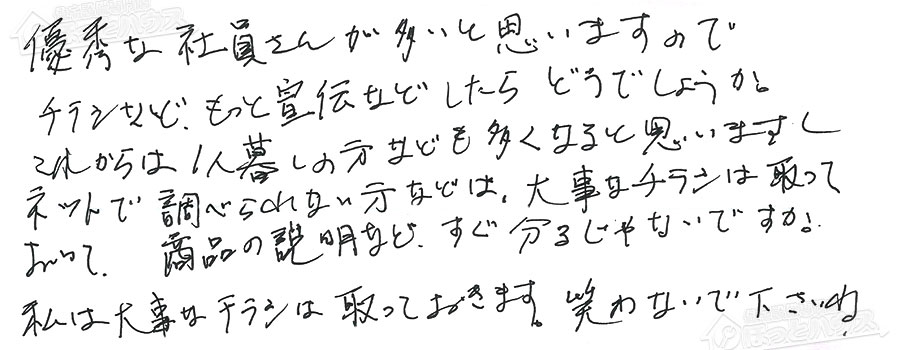 優秀な社員さんが多いと思いますので
チラシなど、もっと宣伝などしたらどうでしょうか。
これからは1人暮しの方なども多くなると思いますし
ネットで調べられない方などは、大事なチラシは取って
おいて、商品の説明など、すぐ分るじゃないですか。
私は大事なチラシは取っておきます。笑わないで下さいね